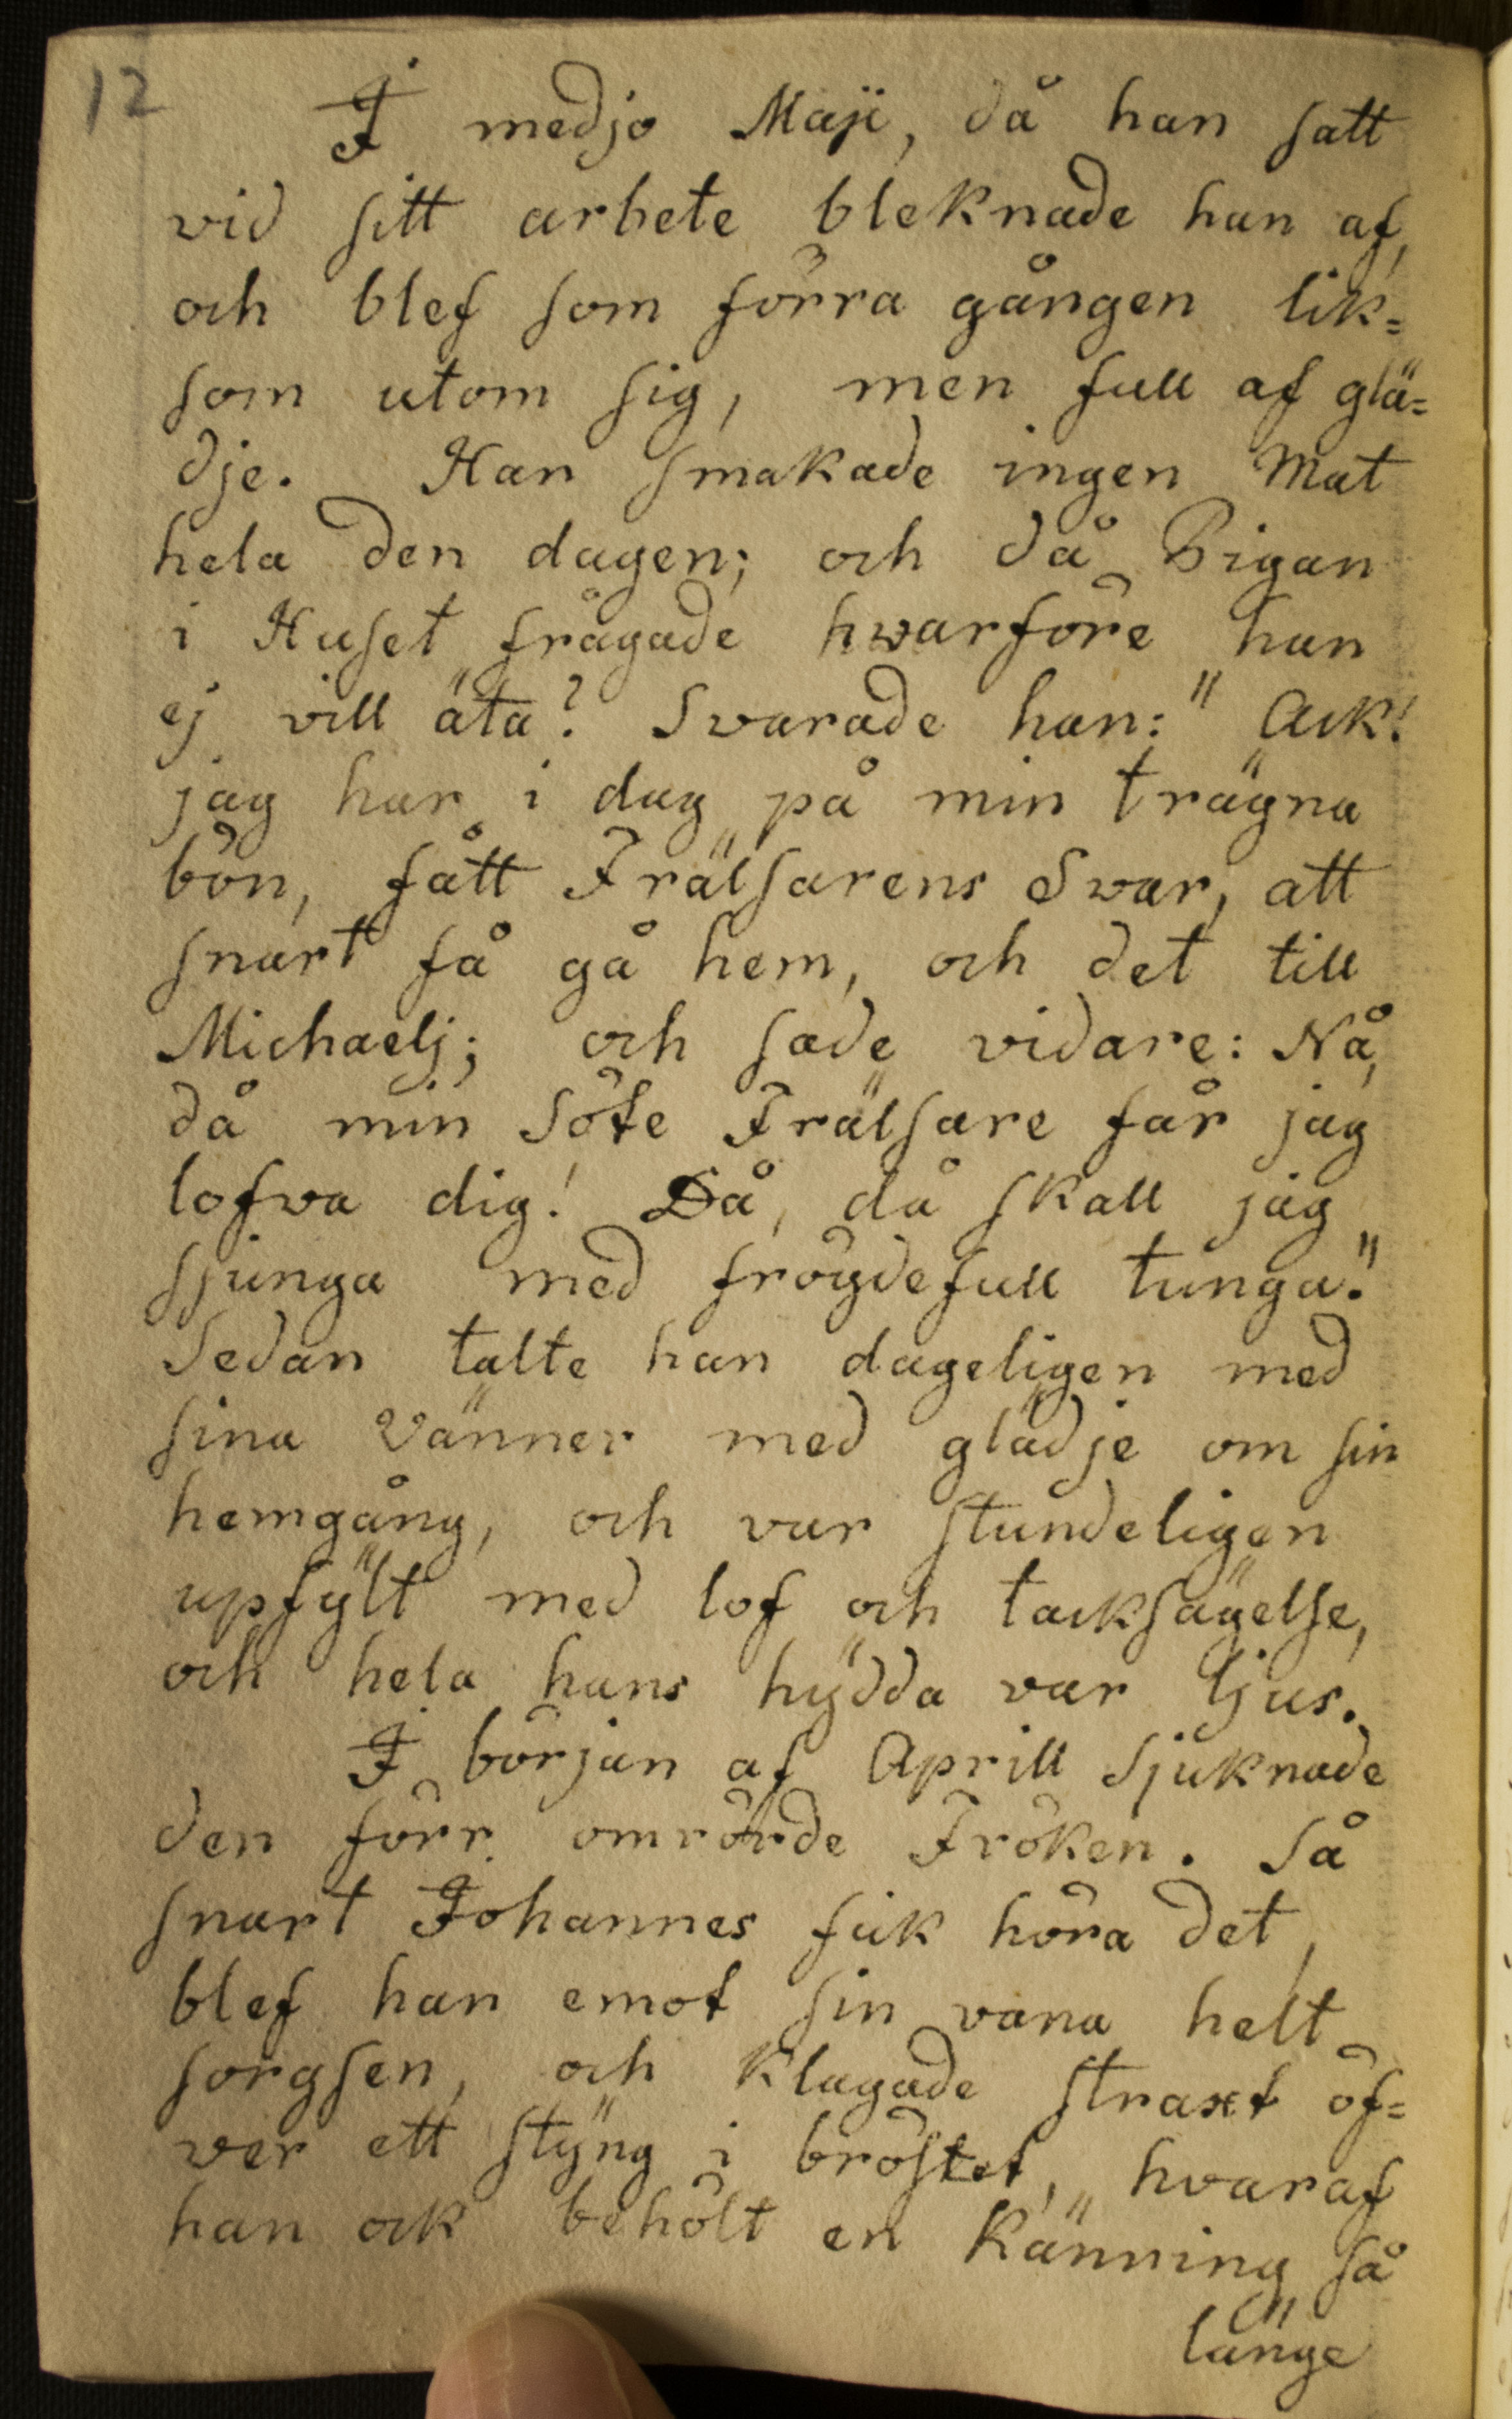 12
I medjo Maji, då han satt
vid sitt arbete bleknade han af,
och blef som förra gången lik=
som utom sig, men full af glä=
dje. Han smakade ingen Mat
hela den dagen; och då Pigan
i Huset frågade hwarföre han
ej vill äta? Svarade han: " Ack!
jag har i dag på min trägna
bön, fått Frälsarens Svar, att
snart få gå hem, och det till
Michaelj; och sade vidare: Nå,
då min Söte Frälsare får jag
lofva dig! Då, då skall jag
sjunga med fröydefull tunga."
Sedan talte han dageligen med
sina Vänner med glädje om sin
hemgång, och var stundeligen
upfylt med lof och tacksägelse,
och hela hans hydda var ljus.
I början af Aprill Sjuknade
den förr omrörde Fröken. Så
snart Johannes fick höra det,
blef han emot sin vana helt
sorgsen, och klagade straxt öf=
ver ett styng i bröstet, hvaraf
han ock behölt en Känning så
länge